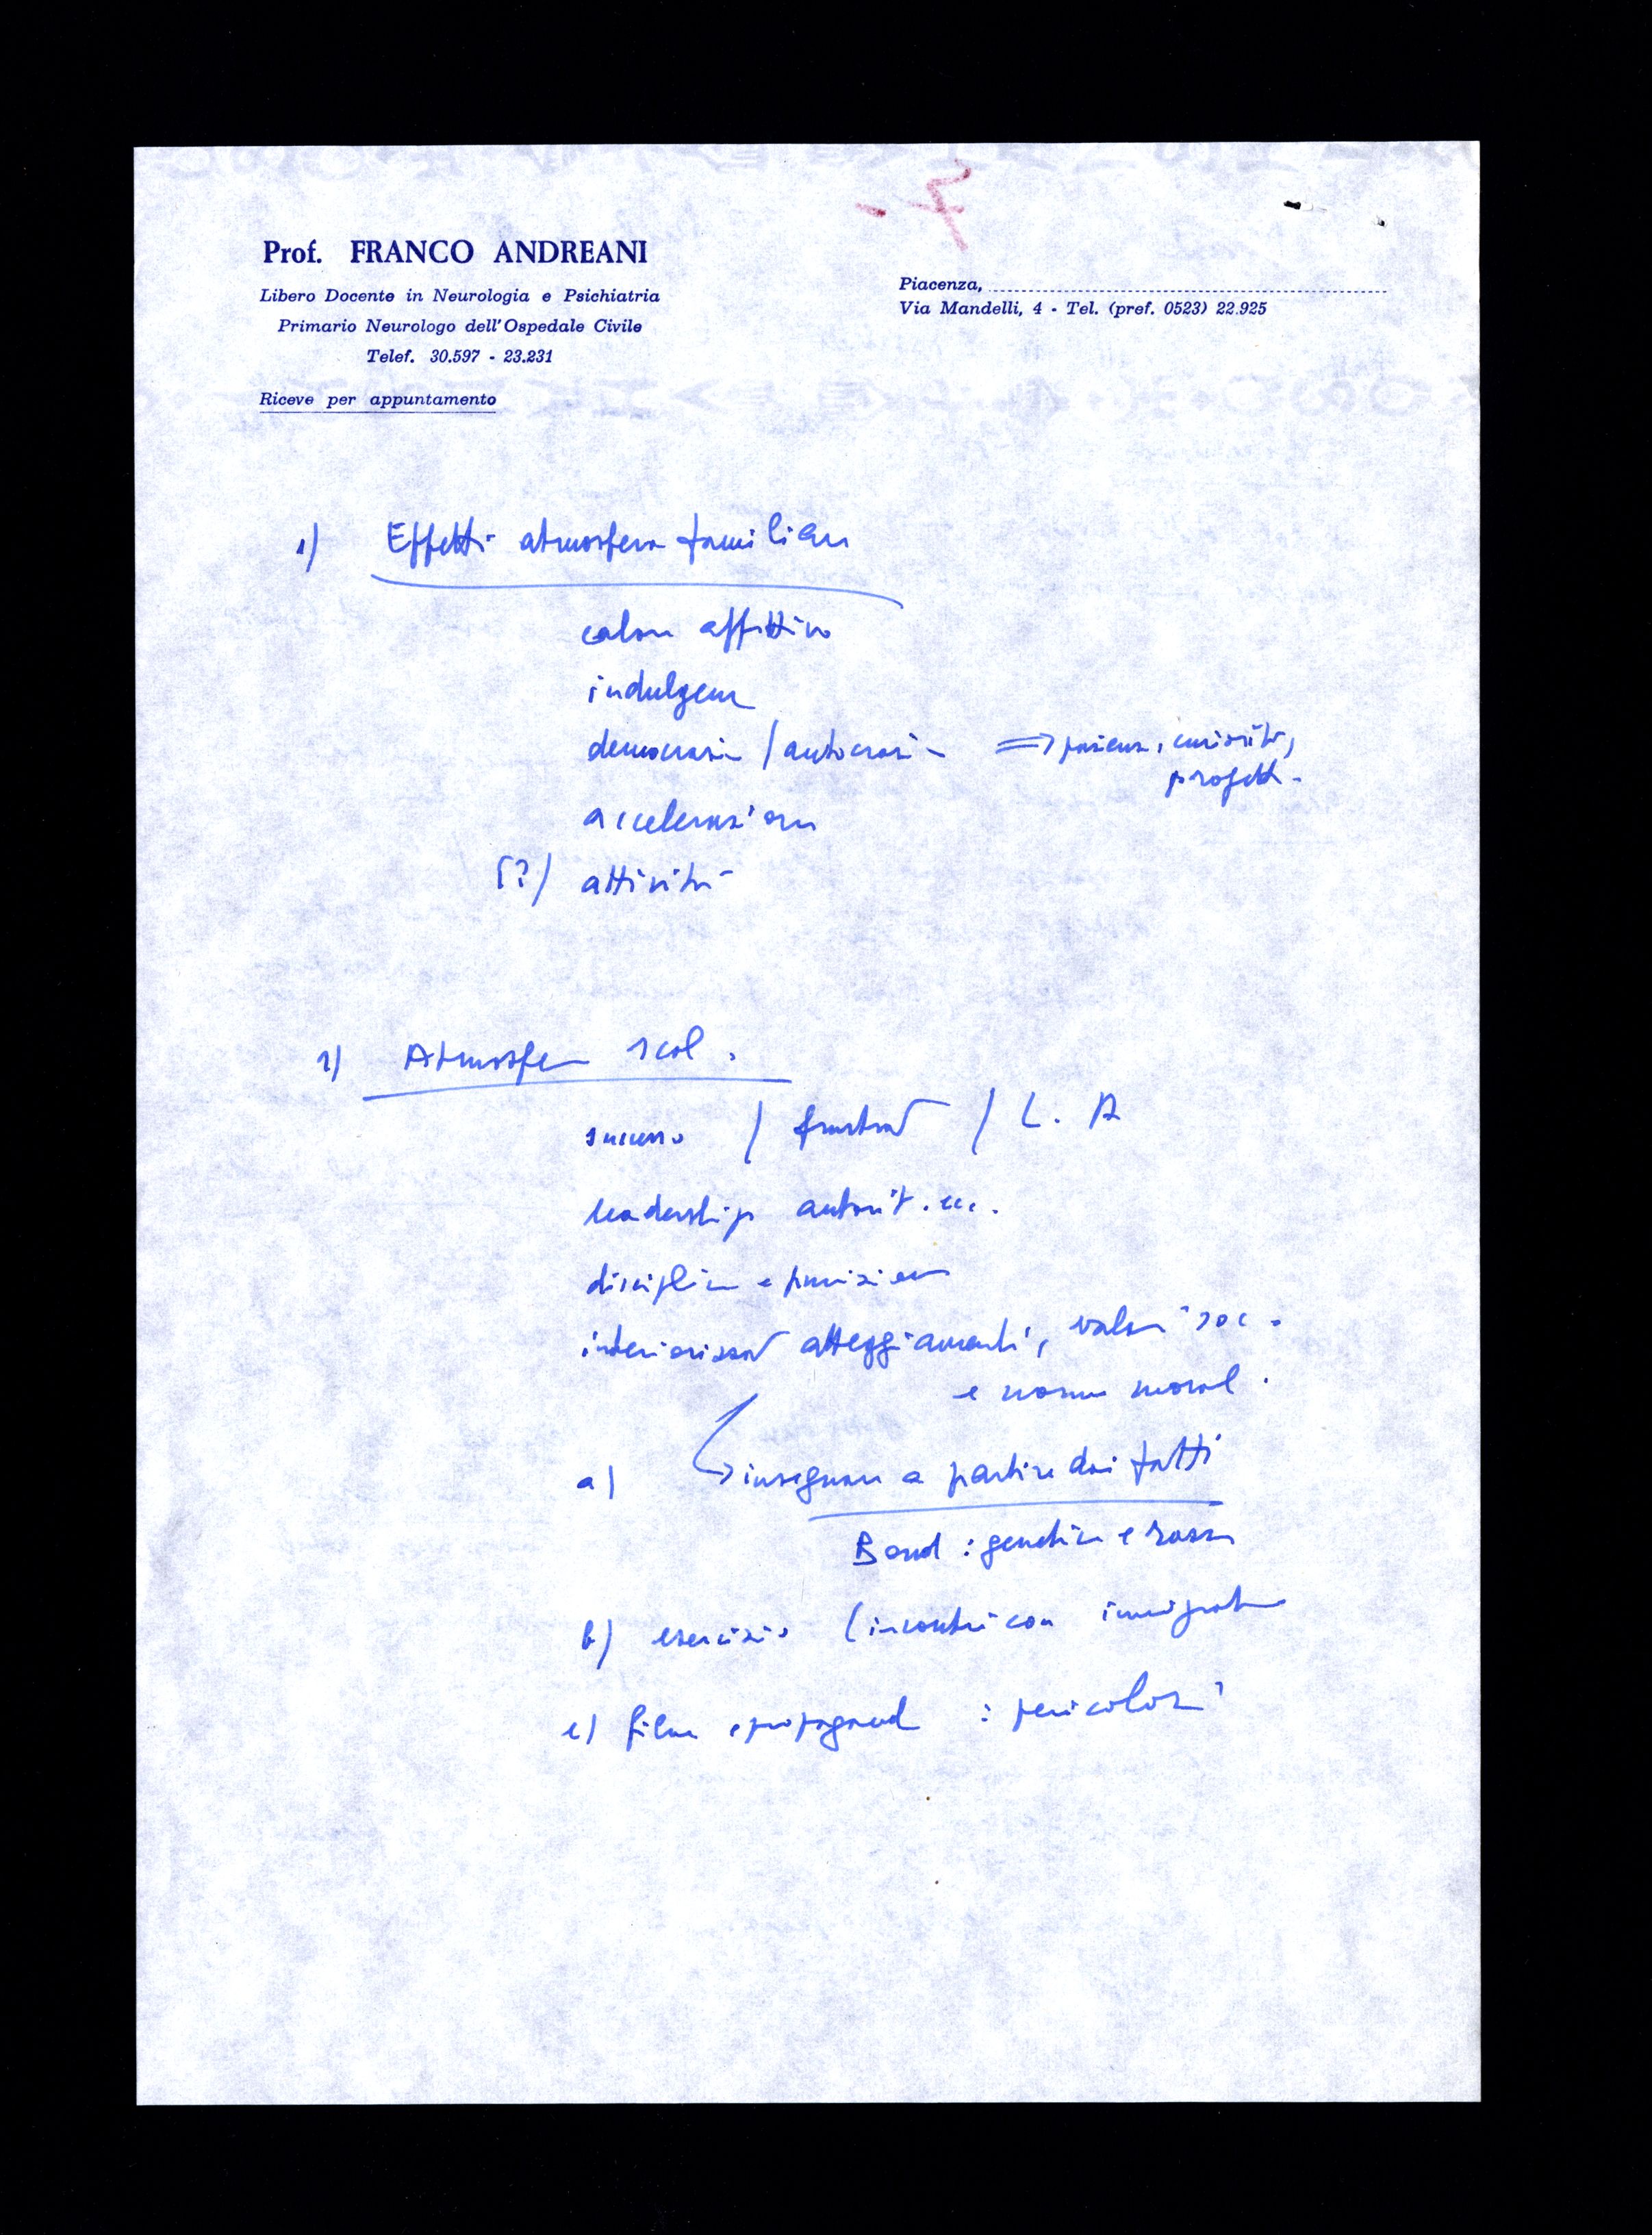 7 -
Prof. FRANCO ANDREANI
Libero Docente in Neurologia e Psichiatria
Primario Neurologo dell'Ospedale Civile
Telef. 30.597 - 23.231
Riceve per appuntamento
Piacenza,
Via Mandelli, 4 - Tel. (pref. 0523) 22.925
1) Effetti atmosfera familiare
calore affettivo
indulgenza
democrazia / autocrazia ⇒ curiosità,
progett.
accelerazione
(?) attività
2) Atmosfera scol.
successo / frustraz / L. A
leadership autorit. ecc.
disciplina e punizione
interiorizzaz atteggiamenti, valori soc.
e norme moral.
a) → insegnare a partire dai fatti
Bond : genetica e razza
b) esercizio (incontri con immigrati
c) film e propaganda : pericolosi